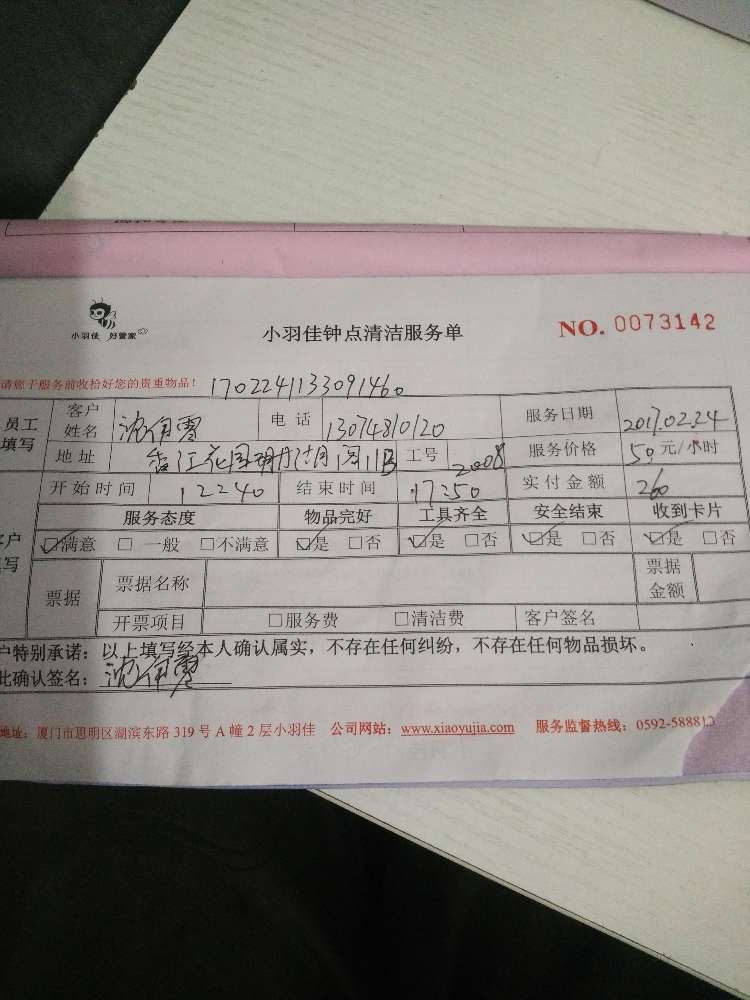 小羽佳 好管家
小羽佳钟点清洁服务单
NO. 0073142
请您于服务前收拾好您的贵重物品! 1702241133091460
员工填写 客户姓名 电话 13074810120 服务日期 2017.02.24
地址 11B 工号 2008 服务价格 50 元/小时
开始时间 12240 结束时间 17:50 实付金额 260
服务态度 物品完好 工具齐全 安全结束 收到卡片
☑满意 □一般 □不满意 ☑是 □否 ☑是 □否 ☑是 □否 ☑是 □否
票据 票据名称 票据金额
开票项目 □服务费 □清洁费 客户签名
户特别承诺:以上填写经本人确认属实,不存在任何纠纷,不存在任何物品损坏。
此确认签名:
地址:厦门市思明区湖滨东路 319 号 A 幢 2 层小羽佳 公司网站:www.xiaoyujia.com 服务监督热线:0592-588813